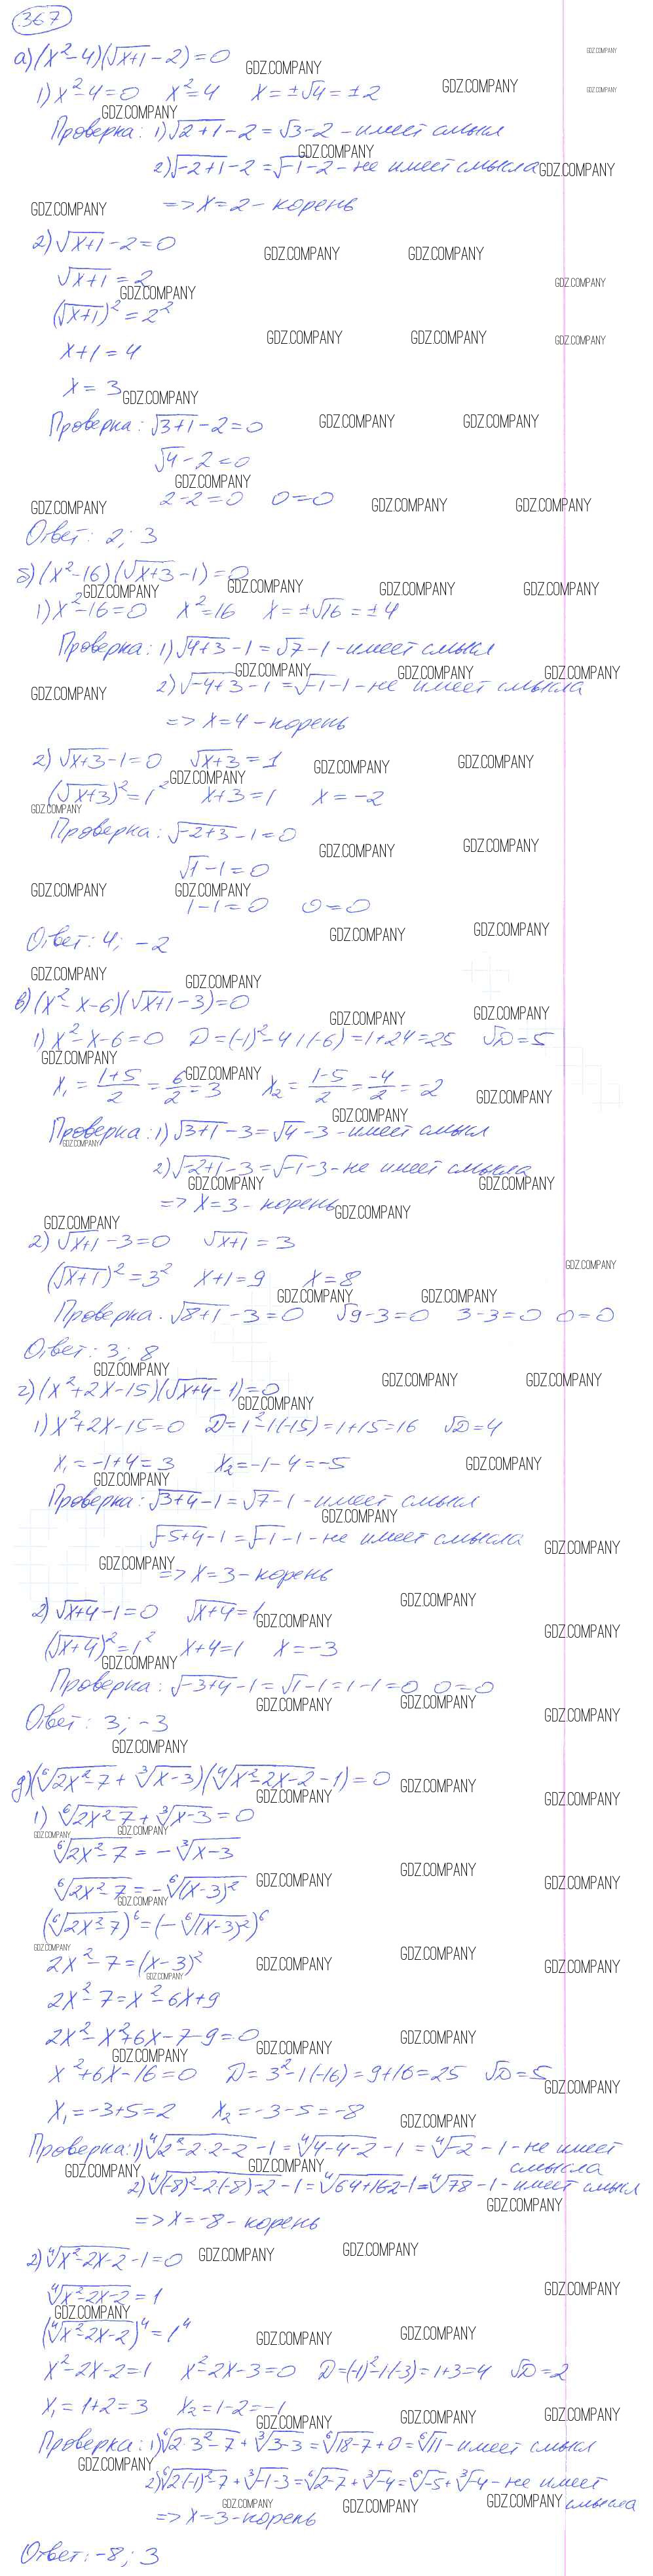 367
а) (x²-4)(√x+1 - 2) = 0
1) x²-4=0 x²=4 x=±√4=±2
Проверка: 1) √2+1 - 2 = √3-2 - имеет смысл
2) √-2+1 - 2 = √-1 - 2 - не имеет смысла
=> x=2 - корень
2) √x+1 - 2 = 0
√x+1 = 2
(√x+1)² = 2²
x+1 = 4
x = 3
Проверка: √3+1 - 2 = 0
√4 - 2 = 0
2-2=0 0=0
Ответ: 2; 3
б) (x²-16)(√x+3 - 1) = 0
1) x²-16=0 x²=16 x=±√16=±4
Проверка: 1) √4+3 - 1 = √7 - 1 - имеет смысл
2) √-4+3 - 1 = √-1 - 1 - не имеет смысла
=> x=4 - корень
2) √x+3 - 1 = 0 √x+3 = 1
(√x+3)² = 1² x+3=1 x=-2
Проверка: √-2+3 - 1 = 0
√1 - 1 = 0
1-1=0 0=0
Ответ: 4; -2
в) (x²-x-6)(√x+1 - 3) = 0
1) x²-x-6=0 D=(-1)²-4·1·(-6)=1+24=25 √D=5
x₁ = 1+5/2 = 6/2 = 3 x₂ = 1-5/2 = -4/2 = -2
Проверка: 1) √3+1 - 3 = √4 - 3 - имеет смысл
2) √-2+1 - 3 = √-1 - 3 - не имеет смысла
=> x=3 - корень
2) √x+1 - 3 = 0 √x+1 = 3
(√x+1)² = 3² x+1=9 x=8
Проверка. √8+1 - 3 = 0 √9-3=0 3-3=0 0=0
Ответ: 3; 8
г) (x²+2x-15)(√x+4 - 1) = 0
1) x²+2x-15=0 D=1²-1(-15)=1+15=16 √D=4
x₁=-1+4=3 x₂=-1-4=-5
Проверка: √3+4 - 1 = √7 - 1 - имеет смысл
√-5+4 - 1 = √-1 - 1 - не имеет смысла
=> x=3 - корень
2) √x+4 - 1 = 0 √x+4 = 1
(√x+4)² = 1² x+4=1 x=-3
Проверка: √-3+4 - 1 = √1 - 1 = 1-1=0 0=0
Ответ: 3; -3
д) (⁶√2x²-7 + ³√x-3)(⁴√x²-2x-2 - 1) = 0
1) ⁶√2x²-7 + ³√x-3 = 0
⁶√2x²-7 = -³√x-3
⁶√2x²-7 = -⁶√(x-3)²
(⁶√2x²-7)⁶ = (-⁶√(x-3)²)⁶
2x²-7=(x-3)²
2x²-7=x²-6x+9
2x²-x²+6x-7-9=0
x²+6x-16=0 D=3²-1(-16)=9+16=25 √D=5
x₁=-3+5=2 x₂=-3-5=-8
Проверка: 1) ⁴√2²-2·2-2 - 1 = ⁴√4-4-2 - 1 = ⁴√-2 - 1 - не имеет
смысла
2) ⁴√(-8)²-2(-8)-2 - 1 = ⁴√64+16-2 - 1 = ⁴√78 - 1 - имеет смысл
=> x=-8 - корень
2) ⁴√x²-2x-2 - 1 = 0
⁴√x²-2x-2 = 1
(⁴√x²-2x-2)⁴ = 1⁴
x²-2x-2=1 x²-2x-3=0 D=(-1)²-1(-3)=1+3=4 √D=2
x₁=1+2=3 x₂=1-2=-1
Проверка: 1) ⁶√2·3²-7 + ³√3-3 = ⁶√18-7 + 0 = ⁶√11 - имеет смысл
2) ⁶√2(-1)²-7 + ³√-1-3 = ⁶√2-7 + ³√-4 = ⁶√-5 + ³√-4 - не имеет
смысла
=> x=3 - корень
Ответ: -8; 3